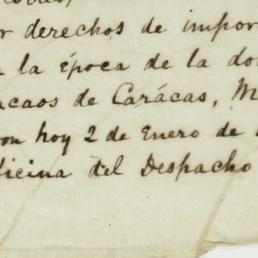 r derechos de impor
la época de la do
caos de Carácas, M
on hoy 2 de Enero de
icina del Despacho